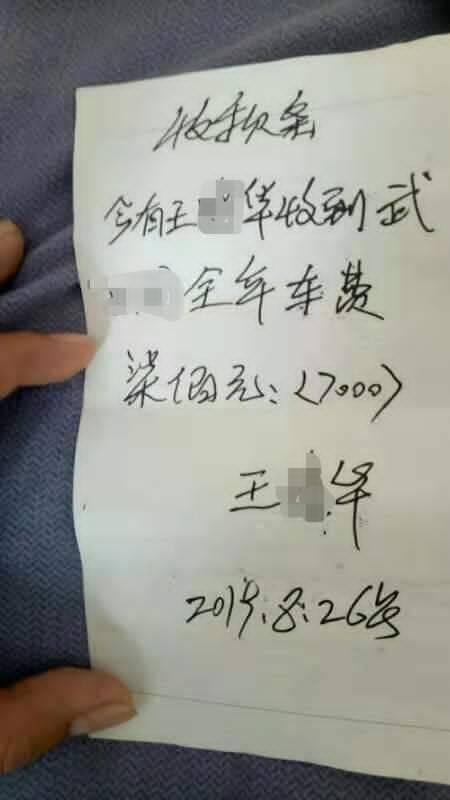 收款条
今有王华收到武
全年车费
柒佰元:<7000>
王华
2019.8.26号